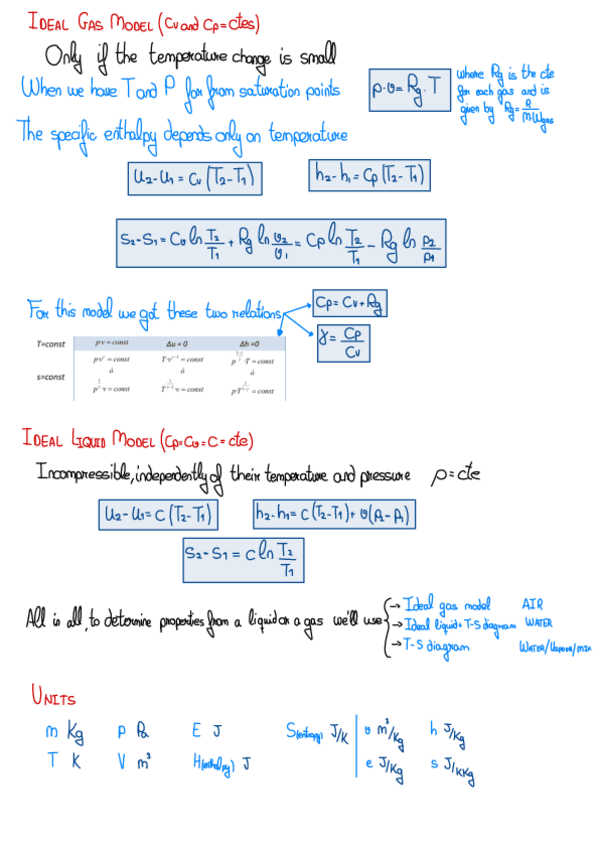 IDEAL GAS MODEL (Cv and Cp=ctes)
Only if the temperature change is small
When we have T and P far from saturation points
p·v=Rg·T
where Rg is the cte
for each gas and is
given by Rg=R/MWgas
The specific enthalpy depends only on temperature
u2-u1 = Cv (T2-T1)
h2-h1 = Cp (T2-T1)
S2-S1 = Cv ln T2/T1 + Rg ln v2/v1 = Cp ln T2/T1 - Rg ln p2/p1
For this model we got these two relations
Cp = Cv+Rg
γ = Cp/Cv
T=const pv = const Δu = 0 Δh =0
s=const
IDEAL LIQUID MODEL (Cp=Cv=C=cte)
Incompressible, independently of their temperature and pressure ρ=cte
u2-u1=c (T2-T1)
h2-h1=c (T2-T1)+ v(p2-p1)
S2-S1 = c ln T2/T1
All in all, to determine properties from a liquid or a gas we'll use
→ Ideal gas model AIR
→ Ideal liquid+T-S diagram WATER
→ T-S diagram WATER/Vapour/mix
UNITS
m Kg p Pa E J S(entropy) J/K v m³/Kg h J/Kg
T K V m³ H(enthalpy) J e J/Kg s J/KKg